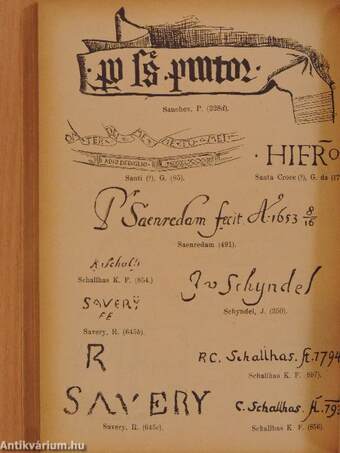 pintor
Sanchez, P. (228d).
Santi (?), G. (85).
· HIFRO
Santa Croce (?), G. da (17
Pr Saenredam fecit A° 1653 8/16
Saenredam (491).
Schallhas K. F. (854.)
J v Schyndel
Schyndel, J. (350).
SAVERY
FE
Savery, R. (645b).
R
SAVERY
Savery, R. (645c).
R.C. Schallhas. ft. 1794
Schallhas K. F. 897).
C. Schallhas. ft. 179
Schallhas K. F. (856).
Antikvárium.hu